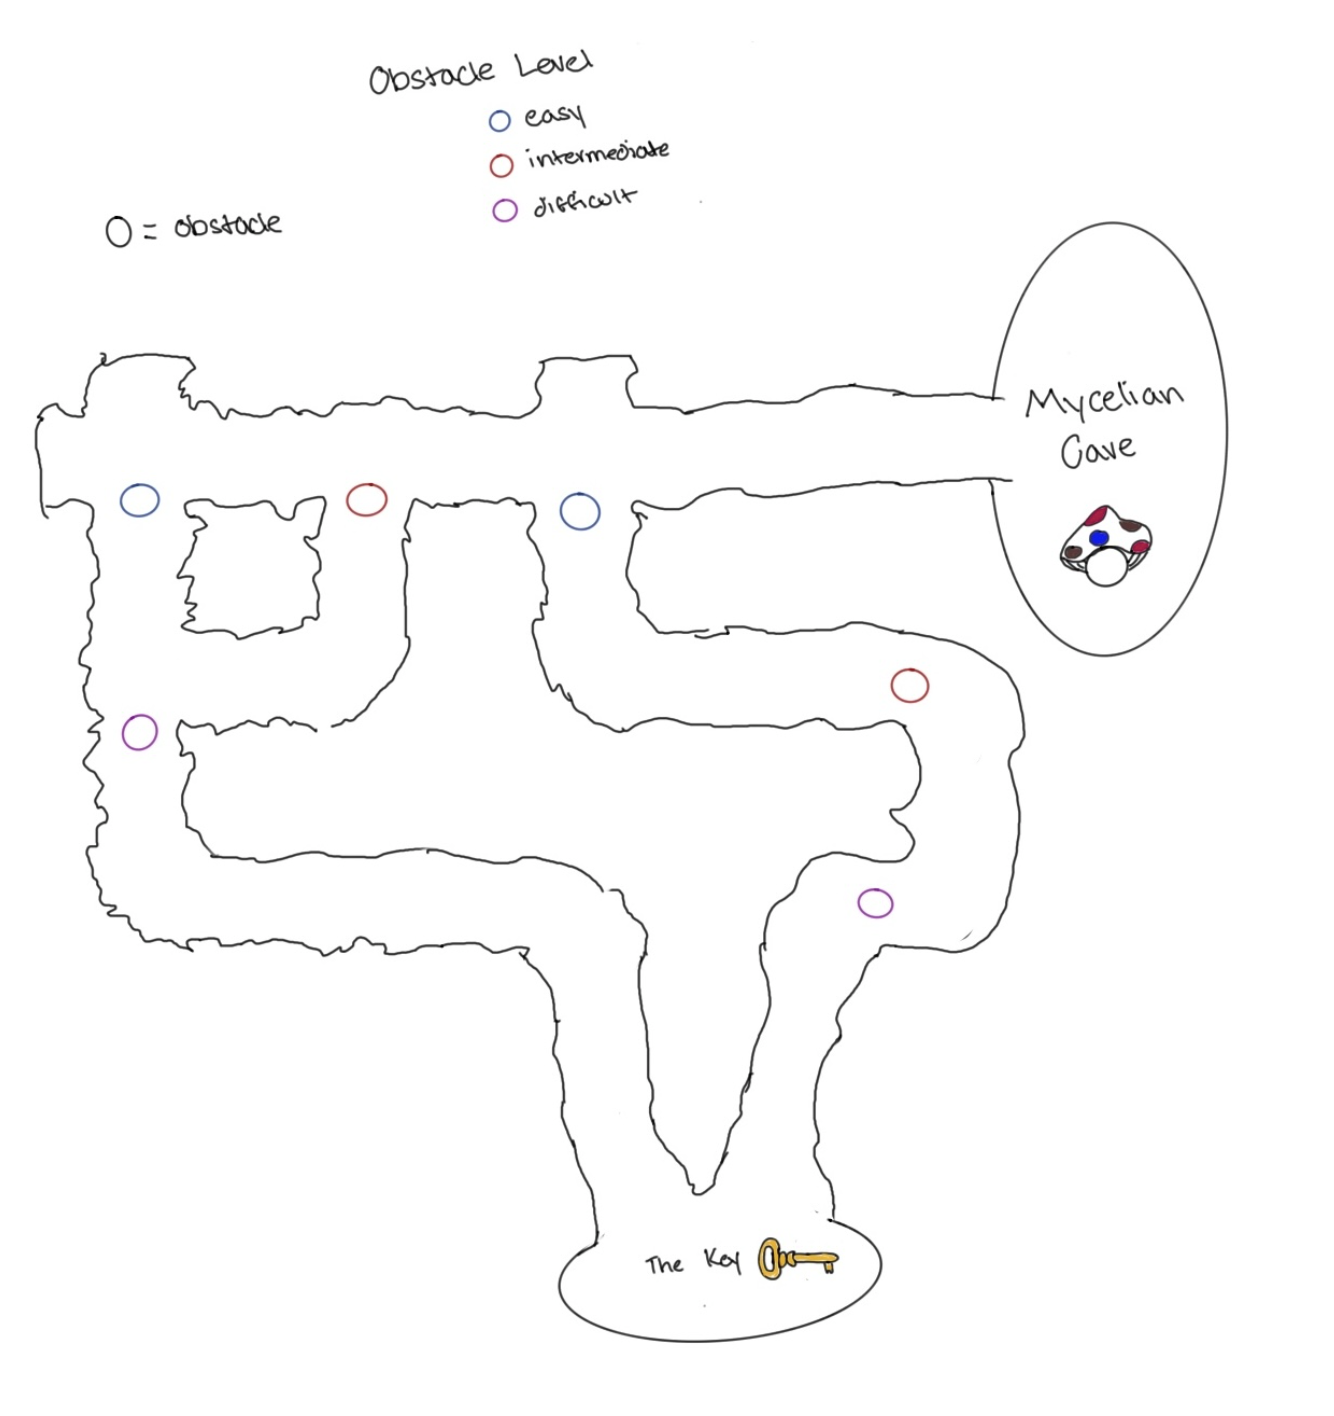 Obstacle Level
easy
intermediate
difficult
O = obstacle
Mycelian
Cave
The Key